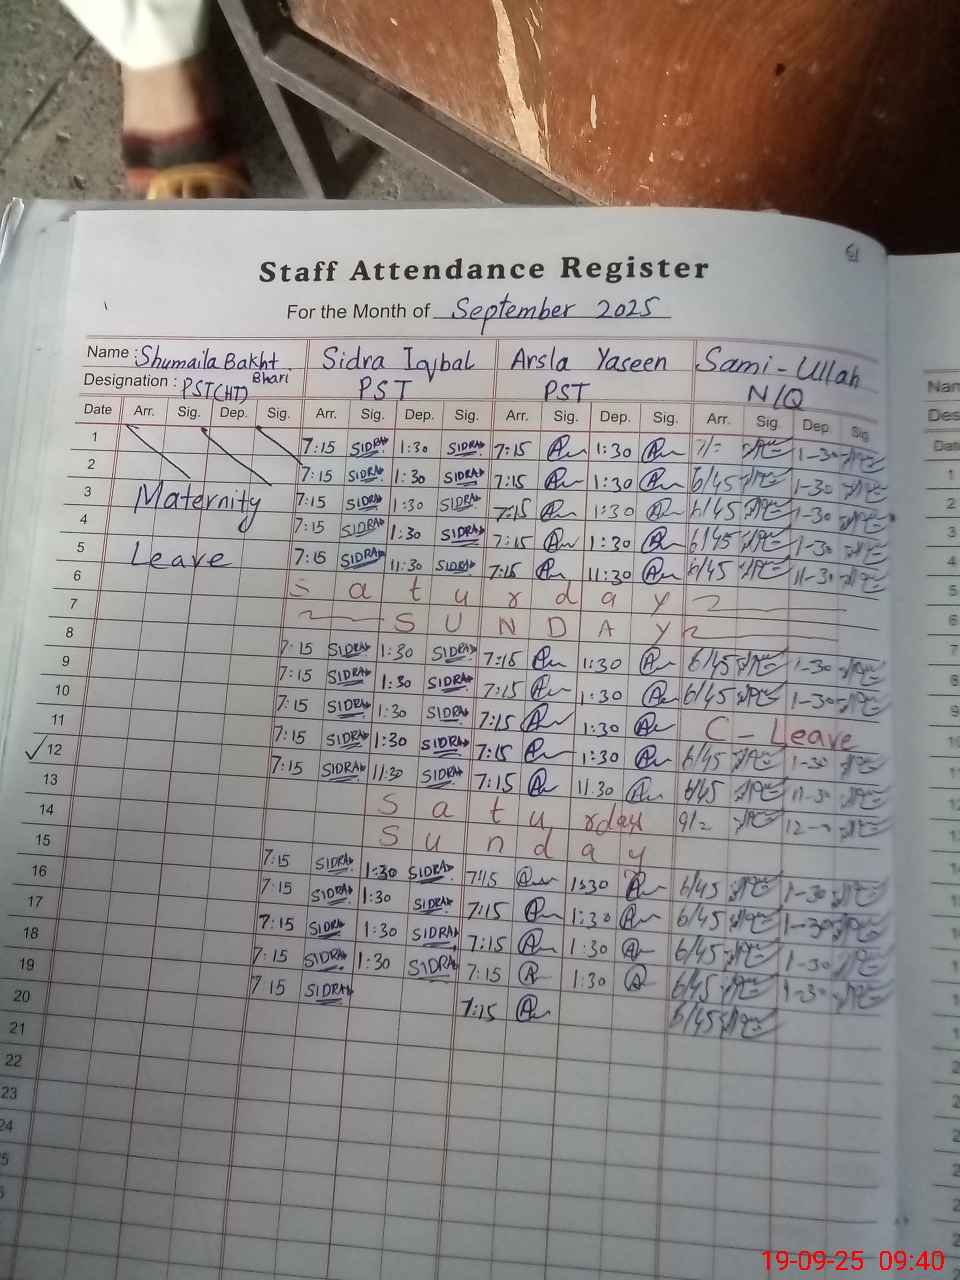 Staff Attendance Register
For the Month of September 2025
Name : Shumaila Bakht Bhari Sidra Iqbal Arsla Yaseen Sami-Ullah
Designation : PST(HT) PST PST N/Q
Date Arr. Sig. Dep. Sig. Arr. Sig. Dep. Sig. Arr. Sig. Dep. Sig. Arr. Sig. Dep. Sig
1 7:15 SIDRA 1:30 SIDRA 7:15 1:30 7/= 1-30
2 7:15 SIDRA 1:30 SIDRA 7:15 1:30 6/45 1-30
3 Maternity 7:15 SIDRA 1:30 SIDRA 7:15 1:30 6/45 1-30
4 7:15 SIDRA 1:30 SIDRA 7:15 1:30 6/45 1-30
5 Leave 7:15 SIDRA 11:30 SIDRA 7:15 11:30 6/45 11-30
6 Saturday
7 SUNDAY
8 7:15 SIDRA 1:30 SIDRA 7:15 1:30 6/45 1-30
9 7:15 SIDRA 1:30 SIDRA 7:15 1:30 6/45 1-30
10 7:15 SIDRA 1:30 SIDRA 7:15 1:30 C-Leave
11 7:15 SIDRA 1:30 SIDRA 7:15 1:30 6/45 1-30
12 7:15 SIDRA 11:30 SIDRA 7:15 11:30 6/45 11-30
13 Saturday 9/= 12-
14 Sunday
15 7:15 SIDRA 1:30 SIDRA 7:15 1:30 6/45 1-30
16 7:15 SIDRA 1:30 SIDRA 7:15 1:30 6/45 1-30
17 7:15 SIDRA 1:30 SIDRA 7:15 1:30 6/45 1-30
18 7:15 SIDRA 1:30 SIDRA 7:15 1:30 6/45 1-30
19 7:15 SIDRA 7:15 6/45
20
21
22
23
24
19-09-25 09:40